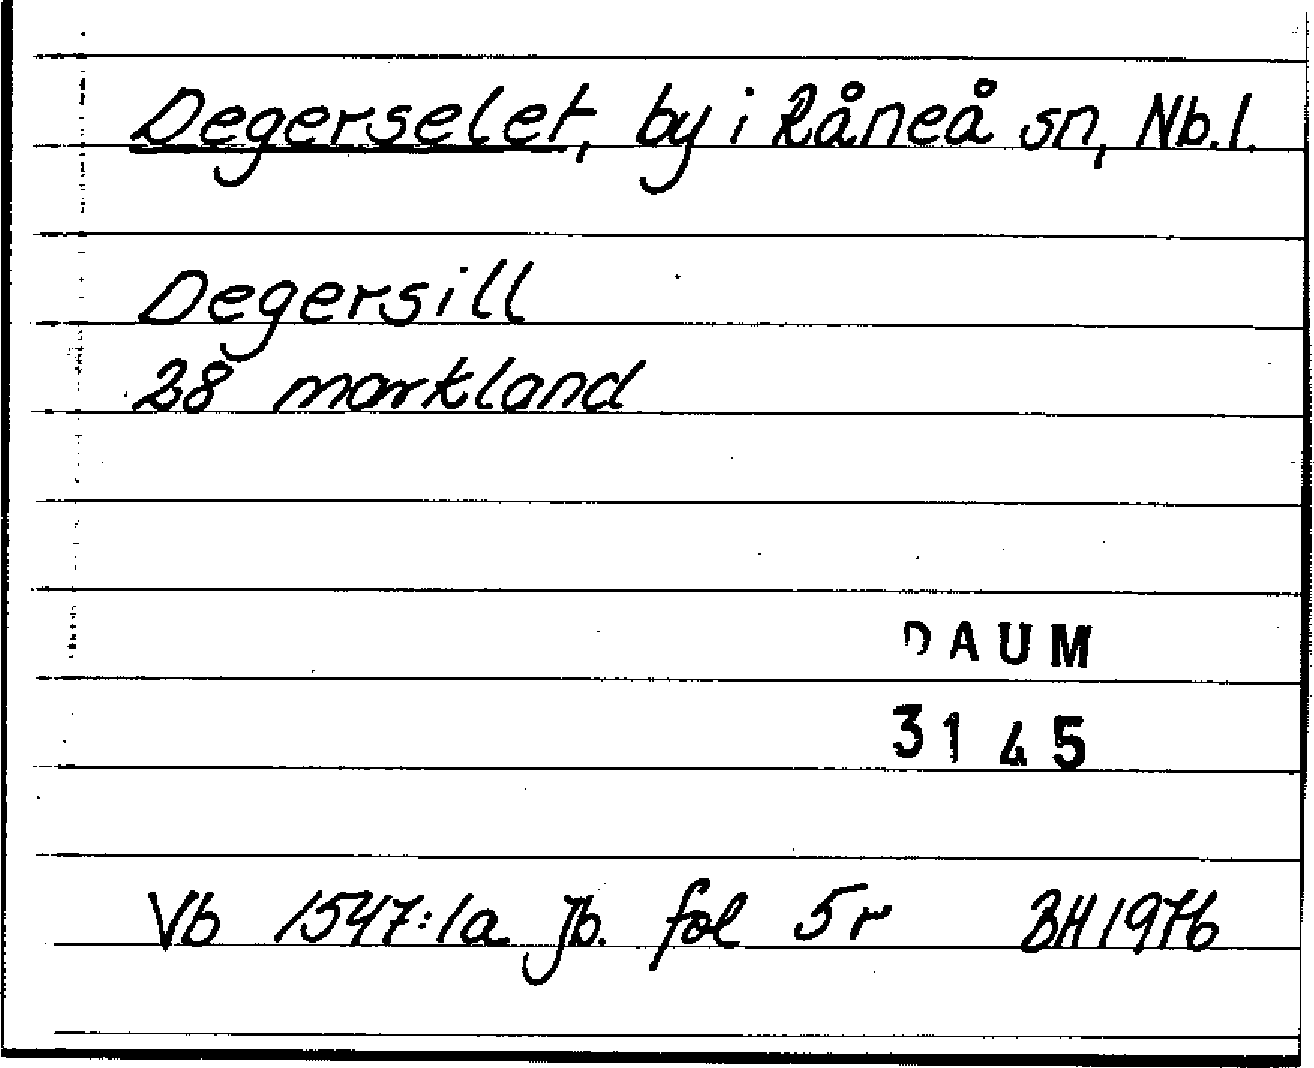 Degerselet, by i Råneå sn, Nb.l.
Degersill
28 markland
DAUM
3145
Vb 1547:1a jb. fol 5r BH 1976